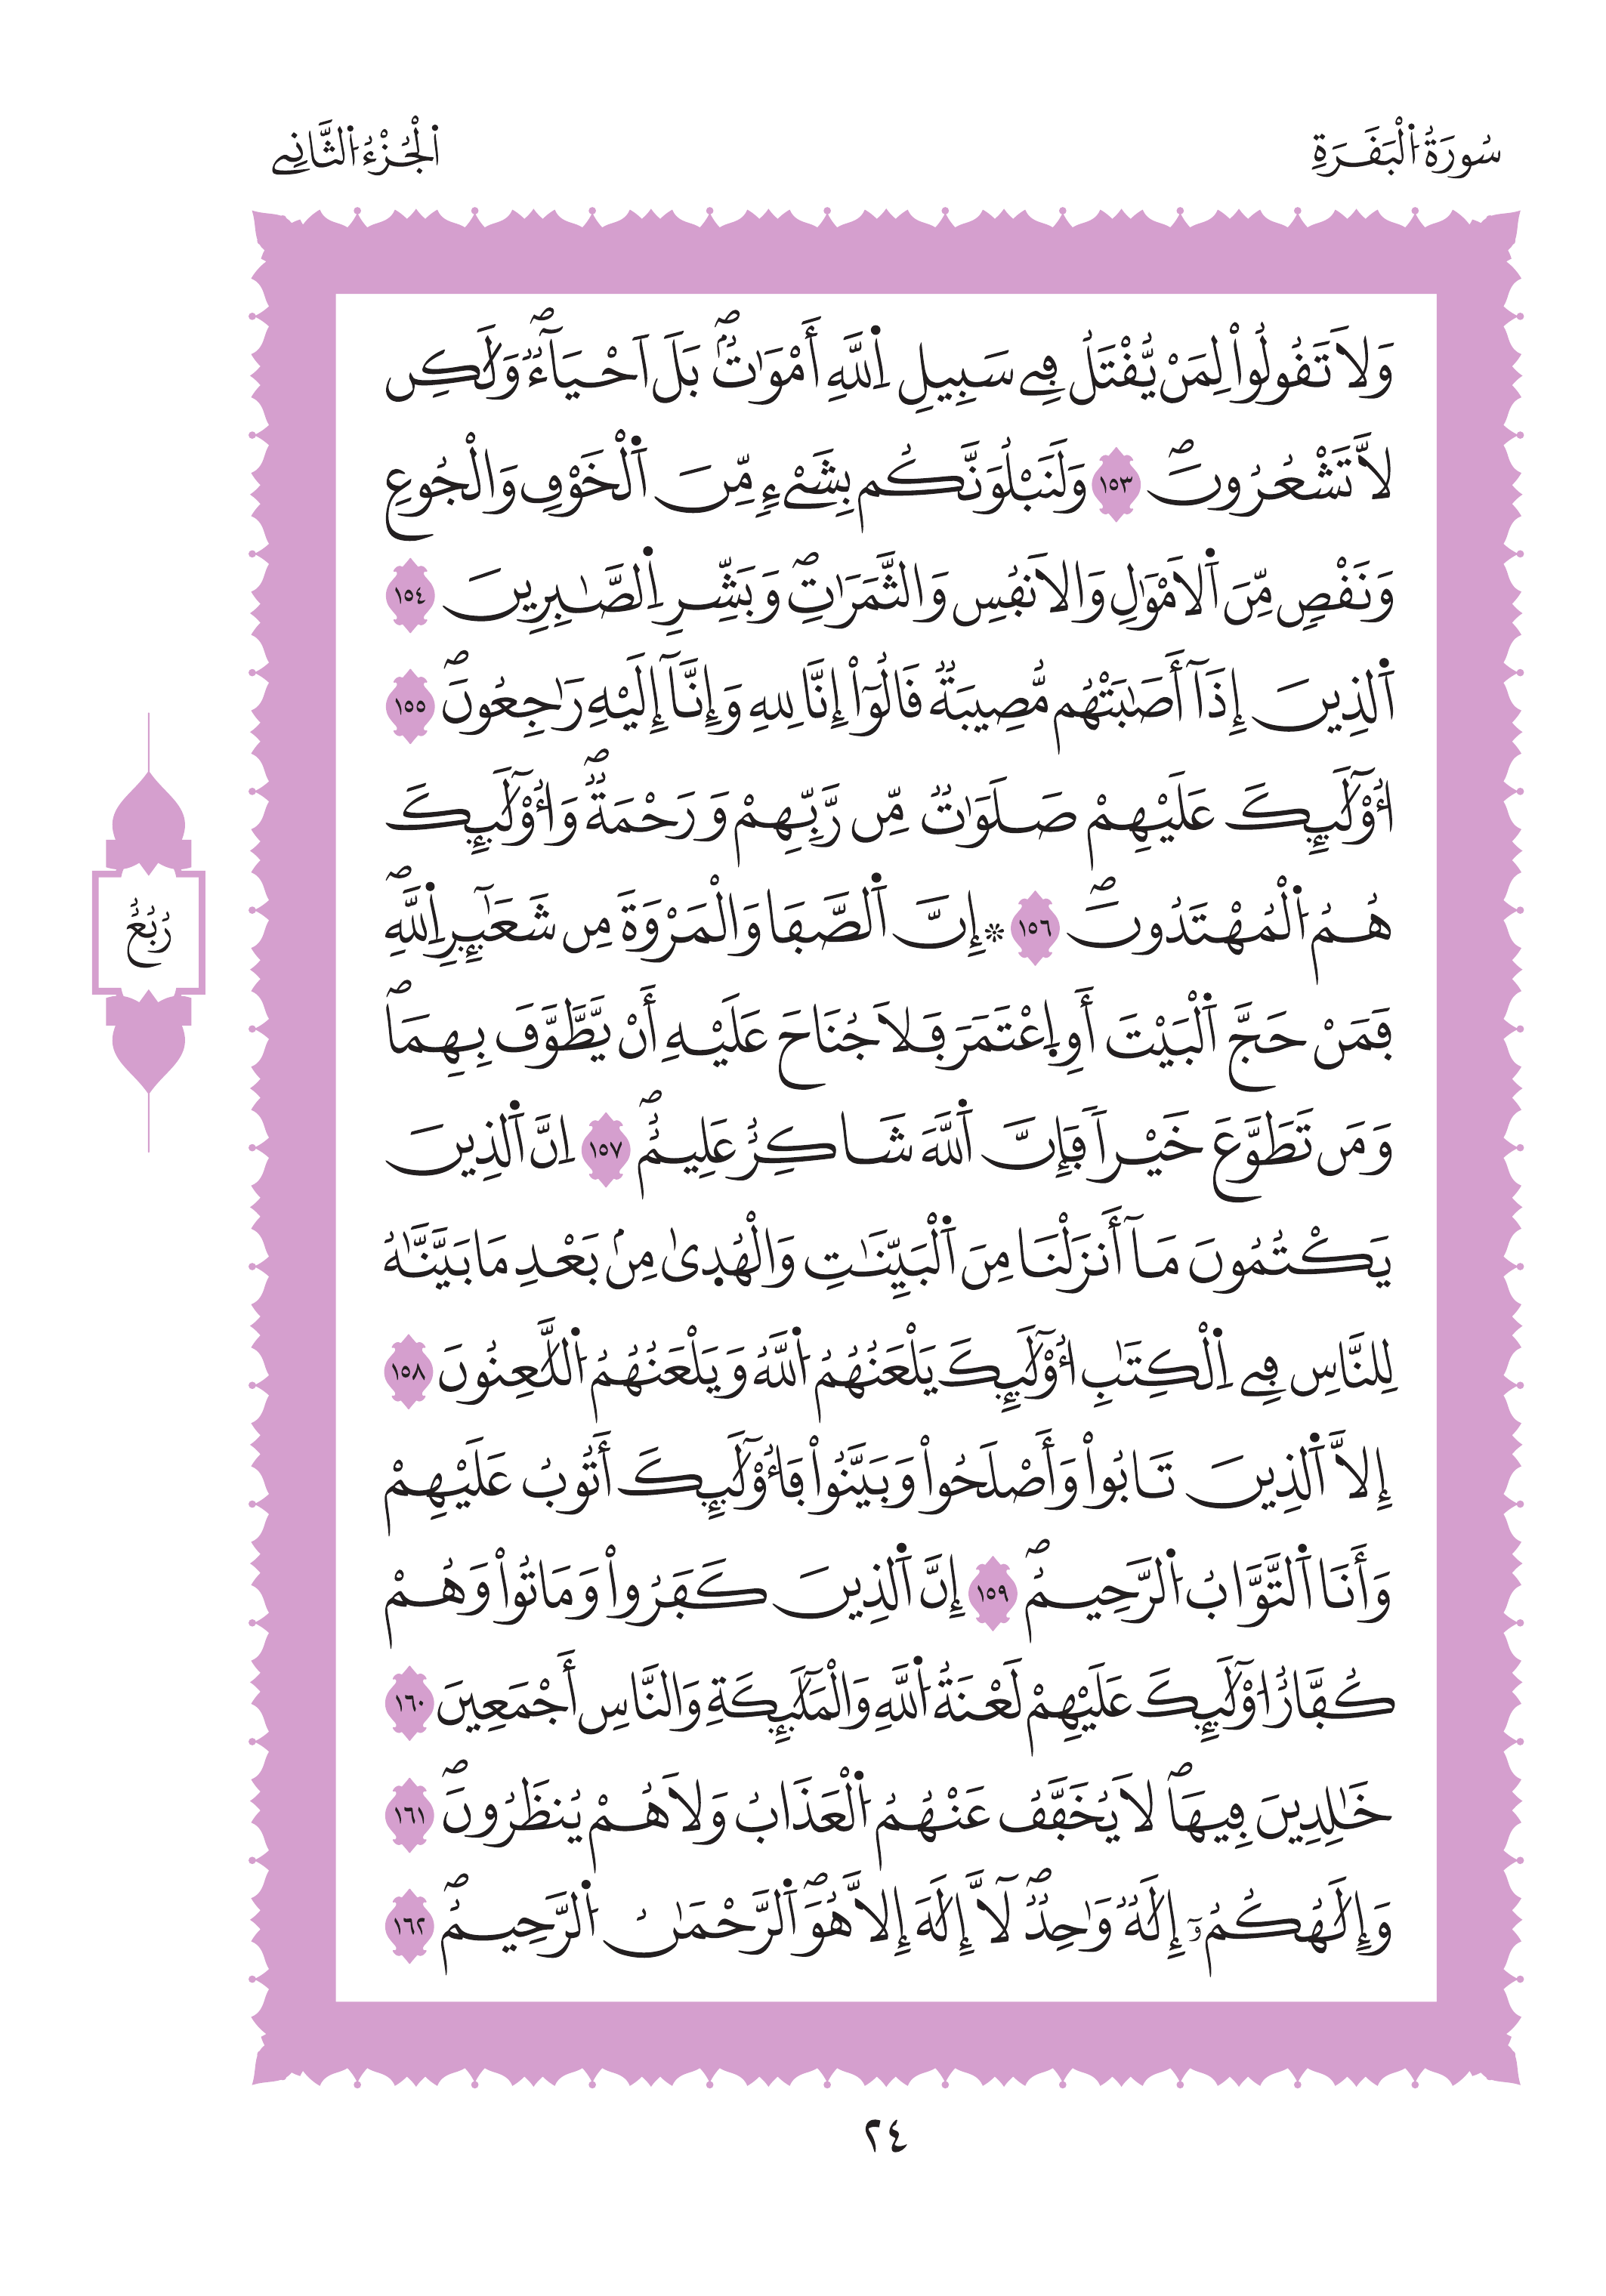 سُورَةُ اُ۬لْبَقَرَةِ
اَ۬لْجُزْءُ اُ۬لثَّانِے
وَلَا تَقُولُواْ لِمَنْ يُّقْتَلُ فِے سَبِيلِ اِ۬للَّهِ أَمْوَٰتُۢۖ بَلَ اَحْيَآءٞۖ وَلَٰكِن
لَّا تَشْعُرُونَۖ ١٥٣ وَلَنَبْلُوَنَّكُم بِشَےْءٖ مِّنَ اَ۬لْخَوْفِ وَالْجُوعِ
وَنَقْصٖ مِّنَ اَ۬لَامْوَٰلِ وَالَانفُسِ وَالثَّمَرَٰتِۖ وَبَشِّرِ اِ۬لصَّٰبِرِينَ ١٥٤
اَ۬لذِينَ إِذَآ أَصَٰبَتْهُم مُّصِيبَةٞ قَالُوٓاْ إِنَّا لِلهِ وَإِنَّآ إِلَيْهِ رَٰجِعُونَۖ ١٥٥
أُوْلَٰٓئِكَ عَلَيْهِمْ صَلَوَٰتٞ مِّن رَّبِّهِمْ وَرَحْمَةٞۖ وَأُوْلَٰٓئِكَ
هُمُ اُ۬لْمُهْتَدُونَۖ ١٥٦ ۞إِنَّ اَ۬لصَّفَا وَالْمَرْوَةَ مِن شَعَٰٓئِرِ اِ۬للَّهِۖ
فَمَنْ حَجَّ اَ۬لْبَيْتَ أَوِ اِ۪عْتَمَرَ فَلَا جُنَاحَ عَلَيْهِ أَنْ يَّطَّوَّفَ بِهِمَاۖ
وَمَن تَطَوَّعَ خَيْراٗ فَإِنَّ اَ۬للَّهَ شَاكِرٌ عَلِيمٌۖ ١٥٧ اِنَّ اَ۬لذِينَ
يَكْتُمُونَ مَآ أَنزَلْنَا مِنَ اَ۬لْبَيِّنَٰتِ وَالْهُد۪ىٰ مِنۢ بَعْدِ مَا بَيَّنَّٰهُ
لِلنَّاسِ فِے اِ۬لْكِتَٰبِ أُوْلَٰٓئِكَ يَلْعَنُهُمُ اُ۬للَّهُ وَيَلْعَنُهُمُ اُ۬للَّٰعِنُونَ ١٥٨
إِلَّا اَ۬لذِينَ تَابُواْ وَأَصْلَحُواْ وَبَيَّنُواْ فَأُوْلَٰٓئِكَ أَتُوبُ عَلَيْهِمْ
وَأَنَا اَ۬لتَّوَّابُ اُ۬لرَّحِيمُۖ ١٥٩ إِنَّ اَ۬لذِينَ كَفَرُواْ وَمَاتُواْ وَهُمْ
كُفَّارٌ ا۟وْلَٰٓئِكَ عَلَيْهِمْ لَعْنَةُ اُ۬للَّهِ وَالْمَلَٰٓئِكَةِ وَالنَّاسِ أَجْمَعِينَ ١٦٠
خَٰلِدِينَ فِيهَاۖ لَا يُخَفَّفُ عَنْهُمُ اُ۬لْعَذَابُ وَلَا هُمْ يُنظَرُونَۖ ١٦١
وَإِلَٰهُكُمُۥٓ إِلَٰهٞ وَٰحِدٞۖ لَّآ إِلَٰهَ إِلَّا هُوَۖ اَ۬لرَّحْمَٰنُ اُ۬لرَّحِيمُۖ ١٦٢
رُبُعُ
٢٤